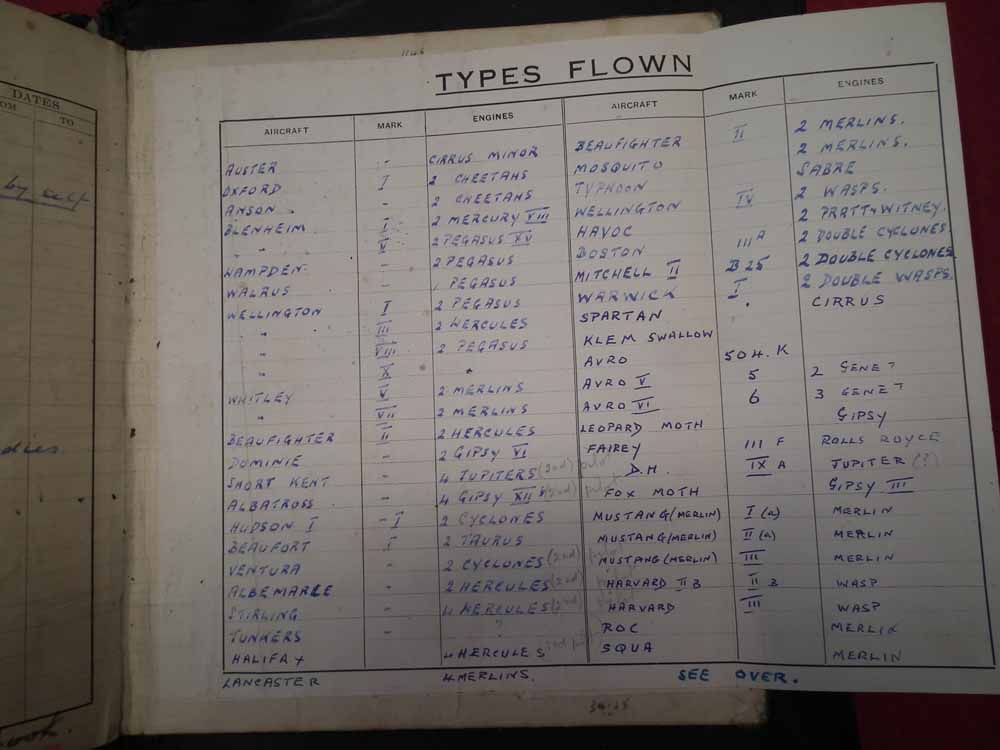 DATES
TO
by self
TYPES FLOWN
AIRCRAFT MARK ENGINES
AUSTER - CIRRUS MINOR
OXFORD I 2 CHEETAHS
ANSON - 2 CHEETAHS
BLENHEIM I 2 MERCURY VIII
" V 2 PEGASUS XV
HAMPDEN - 2 PEGASUS
WALRUS - 1 PEGASUS
WELLINGTON I 2 PEGASUS
" III 2 HERCULES
" VIII 2 PEGASUS
" X "
WHITLEY V 2 MERLINS
" VII 2 MERLINS
BEAUFIGHTER II 2 HERCULES
DOMINIE 2 GIPSY VI
SHORT KENT 4 JUPITERS (2nd) pilot
ALBATROSS 4 GIPSY XII (2nd) pilot
HUDSON I - I 2 CYCLONES
BEAUFORT I 2 TAURUS
VENTURA - 2 CYCLONES (2nd) pilot
ALBEMARLE - 2 HERCULES (2nd)
STIRLING - 4 HERCULES (2nd)
JUNKERS - "
HALIFAX 4 HERCULES 2nd
LANCASTER 4 MERLINS.
AIRCRAFT MARK ENGINES
BEAUFIGHTER II 2 MERLINS.
MOSQUITO 2 MERLINS.
TYPHOON SABRE
WELLINGTON IV 2 WASPS.
HAVOC 2 PRATT + WITNEY.
BOSTON III A 2 DOUBLE CYCLONES
MITCHELL II B 25 2 DOUBLE CYCLONES.
WARWICK I 2 DOUBLE WASPS.
SPARTAN CIRRUS
KLEM SWALLOW
AVRO 504. K
AVRO V 5 2 GENET
AVRO VI 6 3 GENET
LEOPARD MOTH GIPSY
FAIREY III F ROLLS ROYCE
D.H. IX A JUPITER (?)
FOX MOTH GIPSY III
MUSTANG (MERLIN) I (a) MERLIN
MUSTANG (MERLIN) II (a) MERLIN
MUSTANG (MERLIN) III MERLIN
HARVARD II B II B WASP
HARVARD III WASP
ROC MERLIN
SQUA MERLIN
SEE OVER.